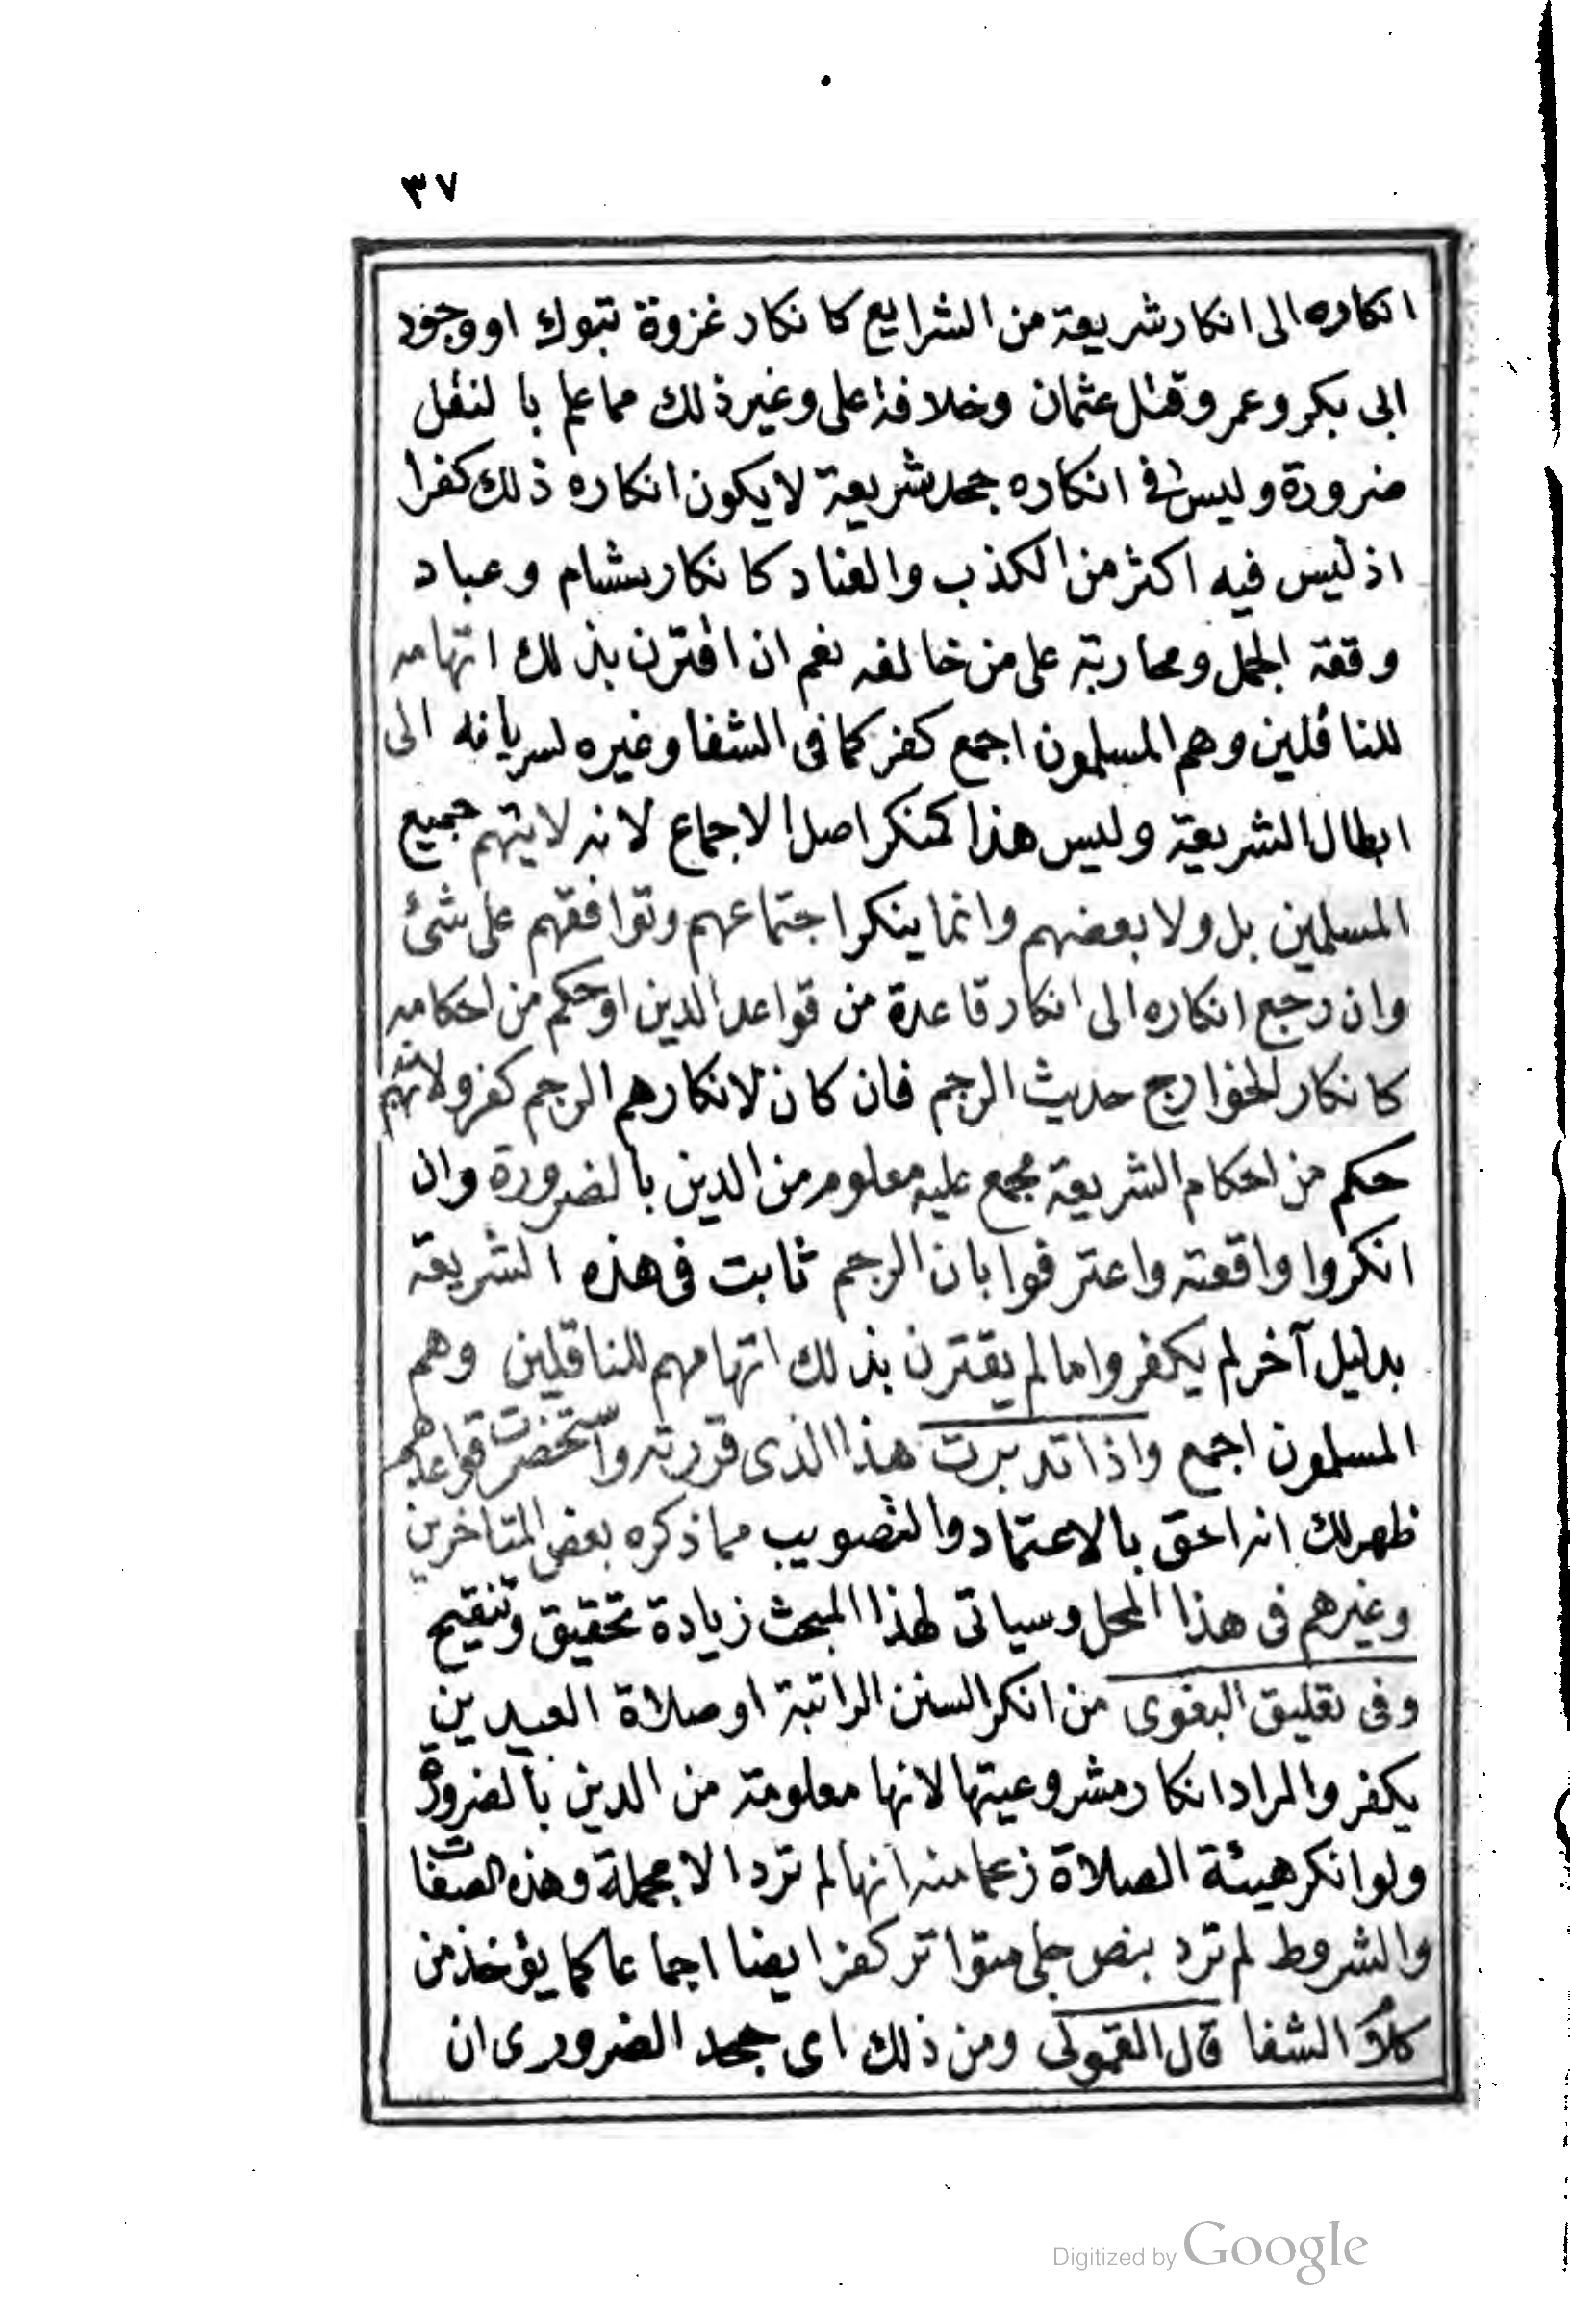 ٣٧
انكاره الى انكار شريعة من الشرايع كانكار غزوة تبوك او وجود
ابى بكر وعمر وقتل عثمان وخلافة على وغير ذلك مما علم بالنقل
ضرورة وليس فى انكاره جحد شريعة لا يكون انكاره ذلك كفرا
اذ ليس فيه اكثر من الكذب والعناد كانكار هشام وعباد
وقعة الجمل ومحاربة على من خالفه نعم ان اقترن بذلك اتهامه
للناقلين وهم المسلمون اجمع كفر كما فى الشفا وغيره لسريانه الى
ابطال الشريعة وليس هذا كمنكر اصل الاجماع لانه لا يتهم جميع
المسلمين بل ولا بعضهم وانما ينكر اجتماعهم وتوافقهم على شئ
وان رجع انكاره الى انكار قاعدة من قواعد الدين او حكم من احكامه
كانكار الخوارج حديث الرجم فان كان لانكارهم الرجم كفروا لانه
حكم من احكام الشريعة مجمع عليه معلوم من الدين بالضرورة وان
انكروا واقعته واعترفوا بان الرجم ثابت فى هذه الشريعة
بدليل آخر لم يكفروا ما لم يقترن بذلك اتهامهم للناقلين وهم
المسلمون اجمع واذا تدبرت هذا الذى قررته واستحضرت قواعدهم
ظهر لك انه احق بالاعتماد والتصويب مما ذكره بعض المتاخرين
وغيرهم فى هذا المحل وسياتى لهذا المبحث زيادة تحقيق وتنقيح
وفى تعليق البغوى من انكر السنن الراتبة او صلاة العيدين
يكفر والمراد انكار مشروعيتها لانها معلومة من الدين بالضرورة
ولو انكر هيئة الصلاة زعما منه انها لم ترد الا مجملة وهذه الصفات
والشروط لم ترد بنص جلى متواتر كفر ايضا اجماعا كما يؤخذ من
كلام الشفا قال القمولى ومن ذلك اى جحد الضرورى ان
Digitized by Google